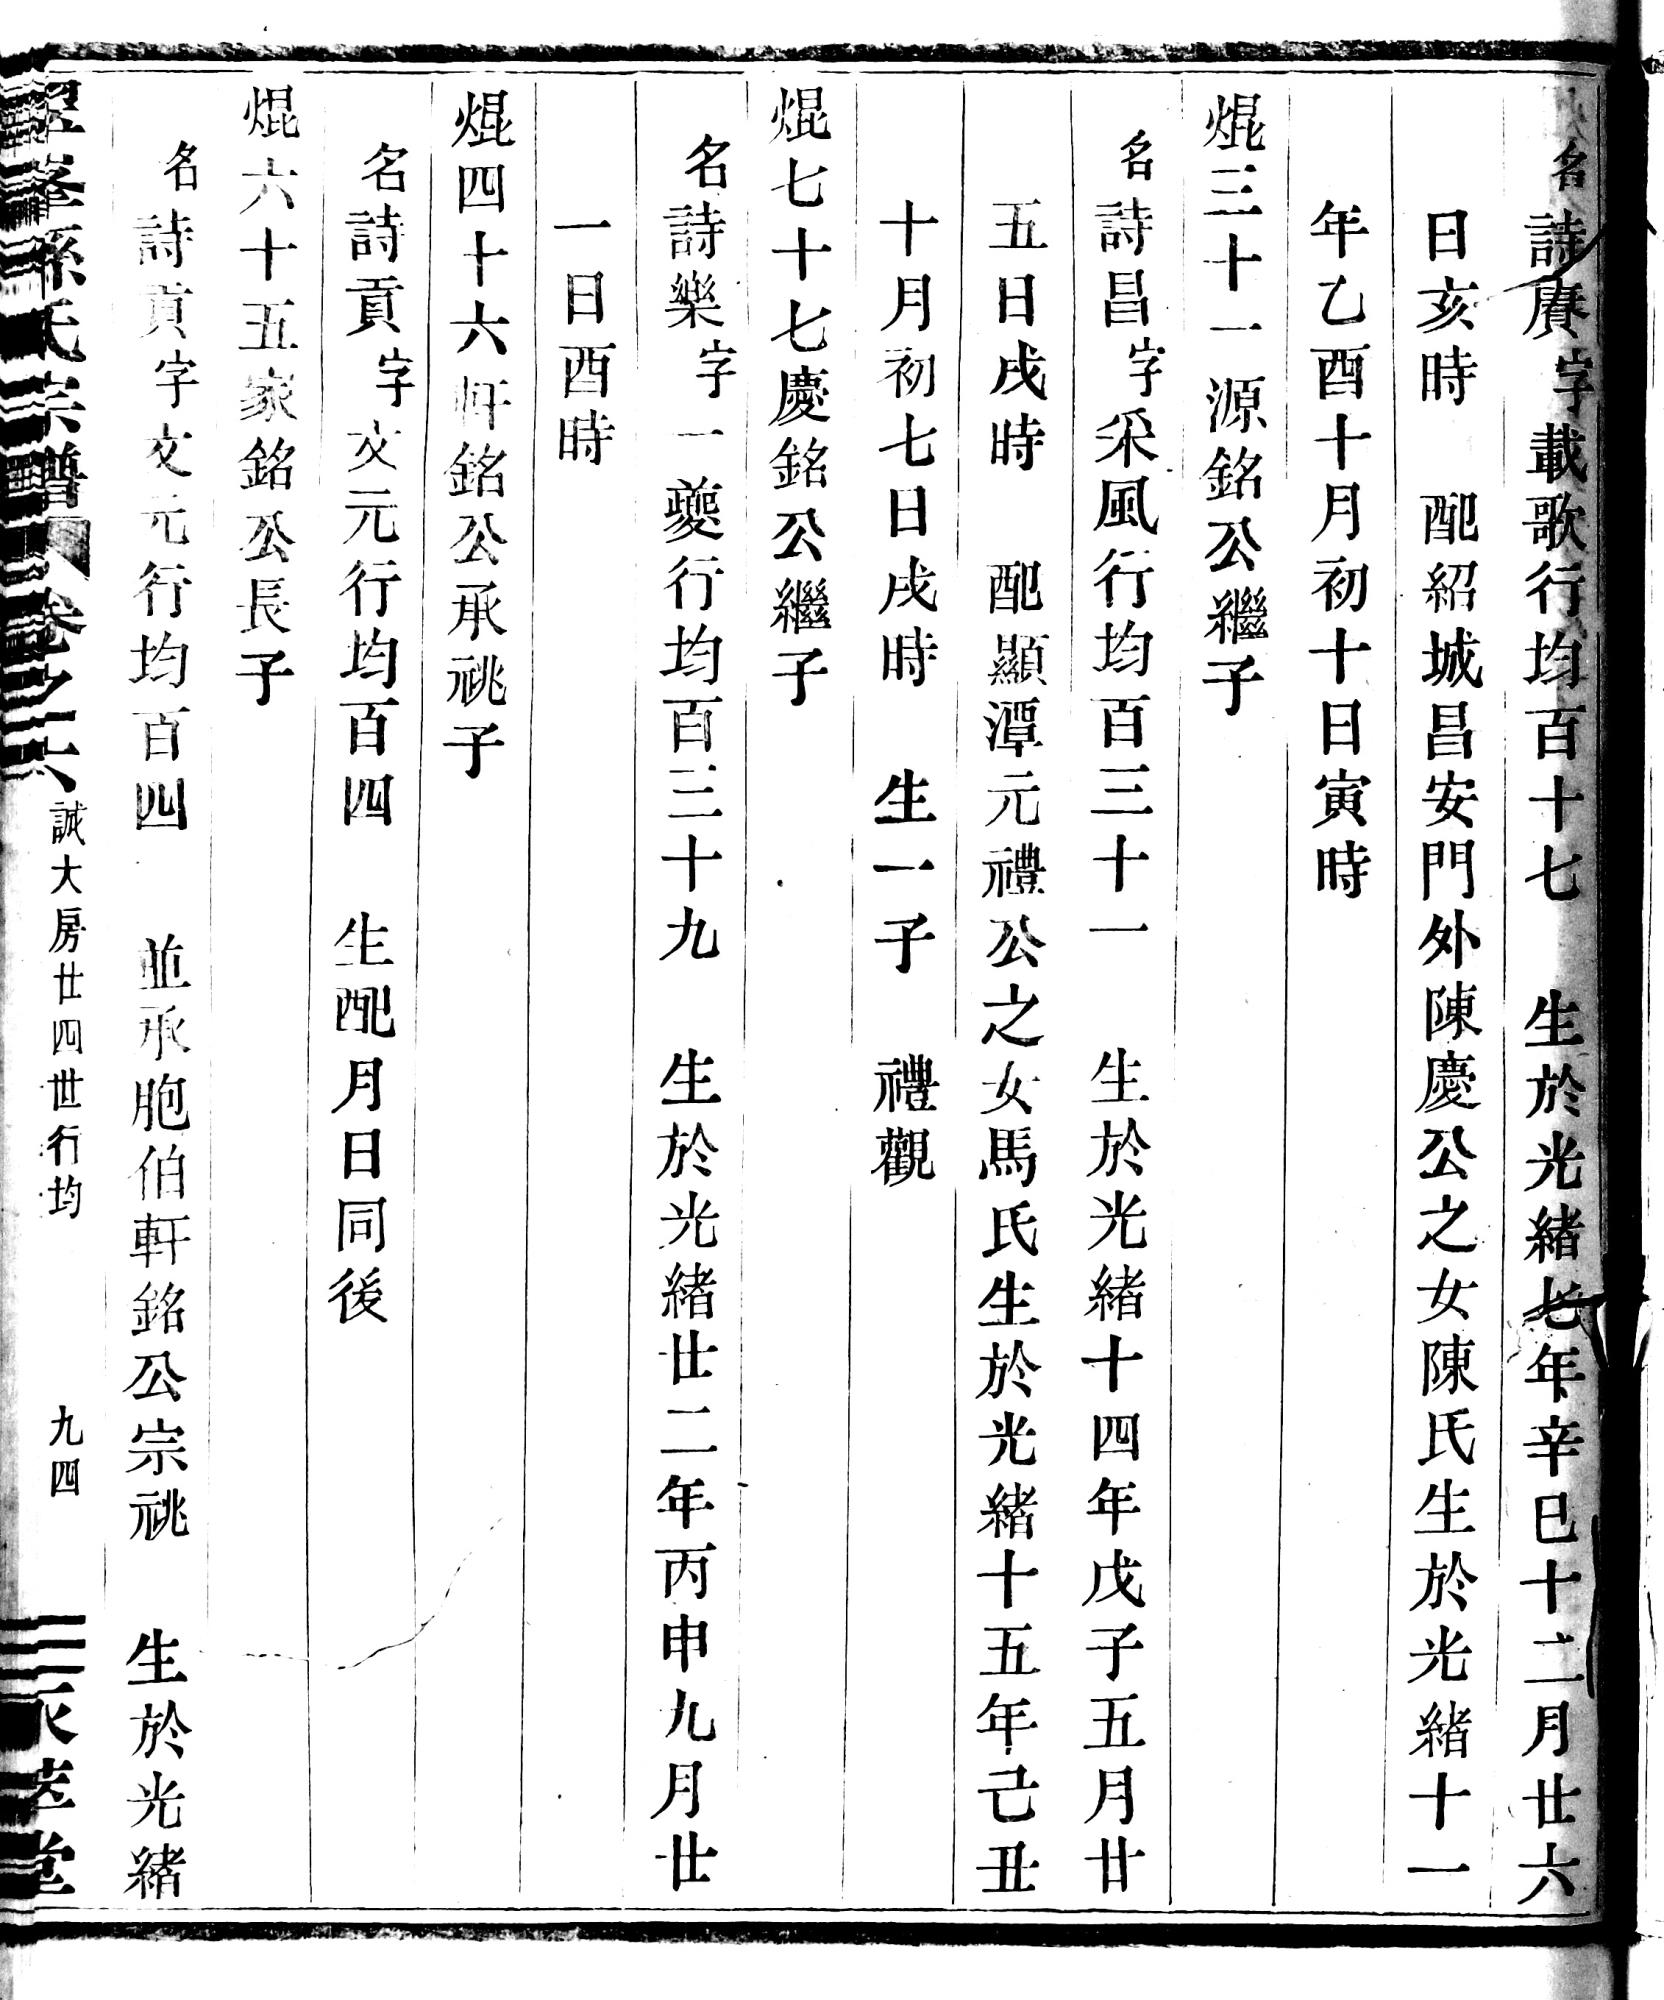 名詩賡字載歌行均百十七　生於光緒七年辛巳十二月廿六
日亥時　配紹城昌安門外陳慶公之女陳氏生於光緒十一
年乙酉十月初十日寅時
焜三十一源銘公繼子
名詩昌字采風行均百三十一　生於光緒十四年戊子五月廿
五日戌時　配顯潭元禮公之女馬氏生於光緒十五年己丑
十月初七日戌時　生一子　禮觀
焜七十七慶銘公繼子
名詩樂字一夔行均百三十九　生於光緒廿二年丙申九月廿
一日酉時
焜四十六軒銘公承祧子
名詩貢字文元行均百四　生配月日同後
焜六十五家銘公長子
名詩貢字文元行均百四　並承胞伯軒銘公宗祧　生於光緒
孫氏宗譜　卷之六　誠大房廿四世行均　九四　堂